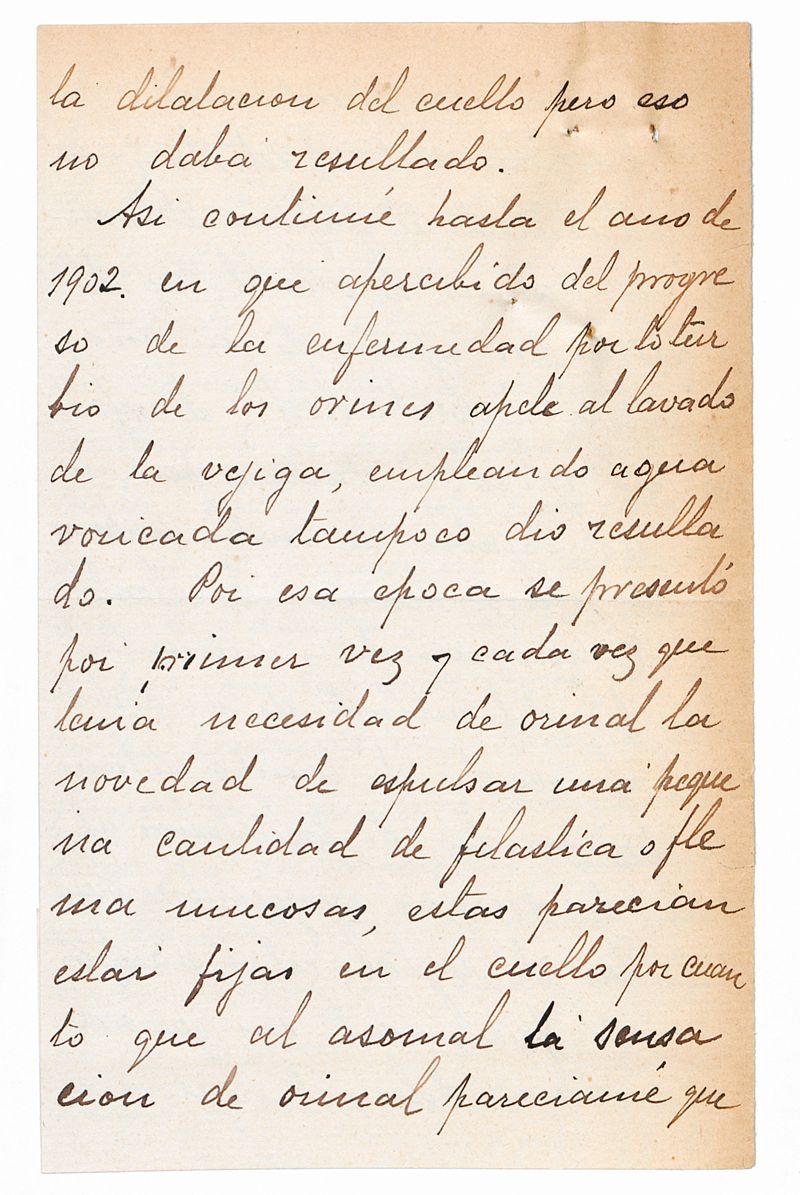 la dilatacion del cuello pero eso
no daba resultado.
Asi continué hasta el ano de
1902. en que apercibido del progre
so de la enfermedad por lo tur
bio de los orines apele al lavado
de la vejiga, empleando agua
voricada tampoco dio resulta
do. Por esa epoca se presentó
por primer vez y cada vez que
tenia necesidad de orinal la
novedad de espulsar una peque
na cantidad de filastica o fle
ma mucosas, estas parecian
estar fijas en el cuello por cuan
to que al asomal la sensa
cion de orinal pareciamé que